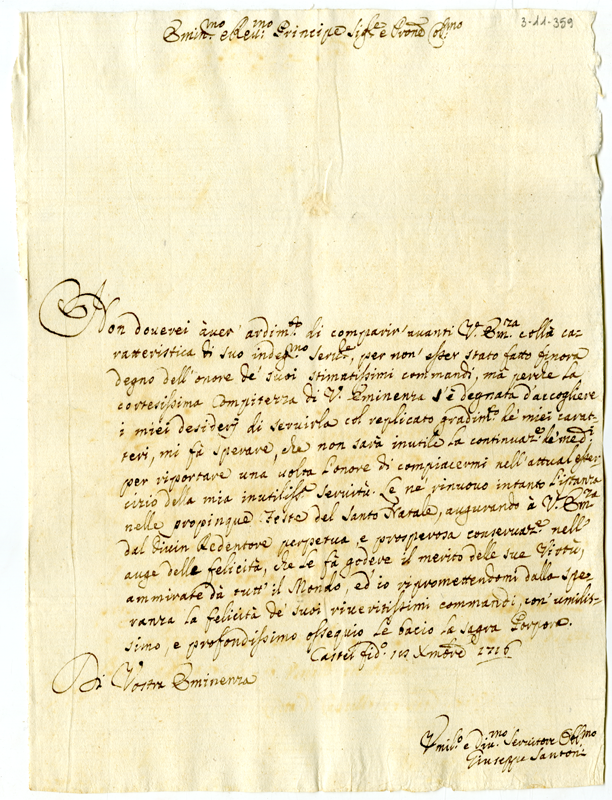 3-11-359
Emin.mo e Rev.mo Principe Sig.re e Pron.e Col.mo
Non doverei àver' ardim.to di comparir' avanti V. Em.za colla ca-
ratteristica di suo indeg.mo serv.e, per non' esser stato fatto finora
degno dell'onore de' suoi stimatissimi commandi, mà perche la
cortesissima Compitezza di V. Eminenza s'è degnata d'accogliere
i miei desiderj di servirla col replicato gradim.to de' miei carat-
teri, mi fà sperare, che non sarà inutile la continuaz.e de' med.i
per riportare una volta l'onore di compiacermi nell'attual eser-
cizio della mia inutiliss.a servitù. Le ne rinuovo intanto l'istanza
nelle propinque Feste del Santo Natale, augurando à V. Em.za
dal Divin Redentore perpetua, e prosperosa conservaz.e nell'
auge delle felicità, che le fà godere il merito delle sue Virtù,
ammirate dà tutt' il Mondo, ed' io ripromettendomi dalla spe-
ranza la felicità de' suoi riveritissimi commandi, con' umilis-
simo, e profondissimo ossequio le bacio la sagra Porpora.
Castel fid.o Xmbre 1716
Di Vostra Eminenza
Umil.o e Div.mo Servitore Obl.mo
Giuseppe Santoni